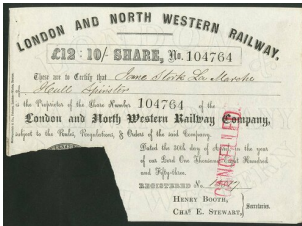 LONDON AND NORTH WESTERN RAILWAY.
£12:10/- SHARE, No. 104764
These are to Certify that
of Spinster
is the Proprietor of the Share Number 104764 of the
London and North Western Railway Company,
subject to the Rules, Regulations, & Orders of the said Company.
Dated the 30th day of April in the year
of our Lord One Thousand Eight Hundred
and Fifty-three.
REGISTERED No.
HENRY BOOTH,
CHAS. E. STEWART,
Secretaries.
CANCELLED.